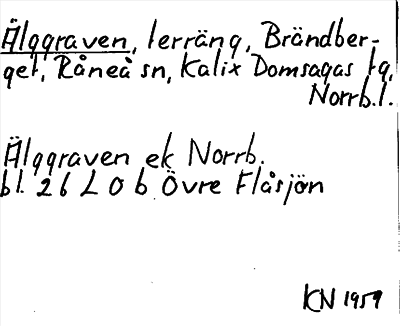 Älggraven, terräng, Brändber-
get, Råneå sn, Kalix Domsagas tg,
Norrb. l.
Älggraven ek Norrb.
bl. 26 L 0 b Övre Flåsjön
KN 1959